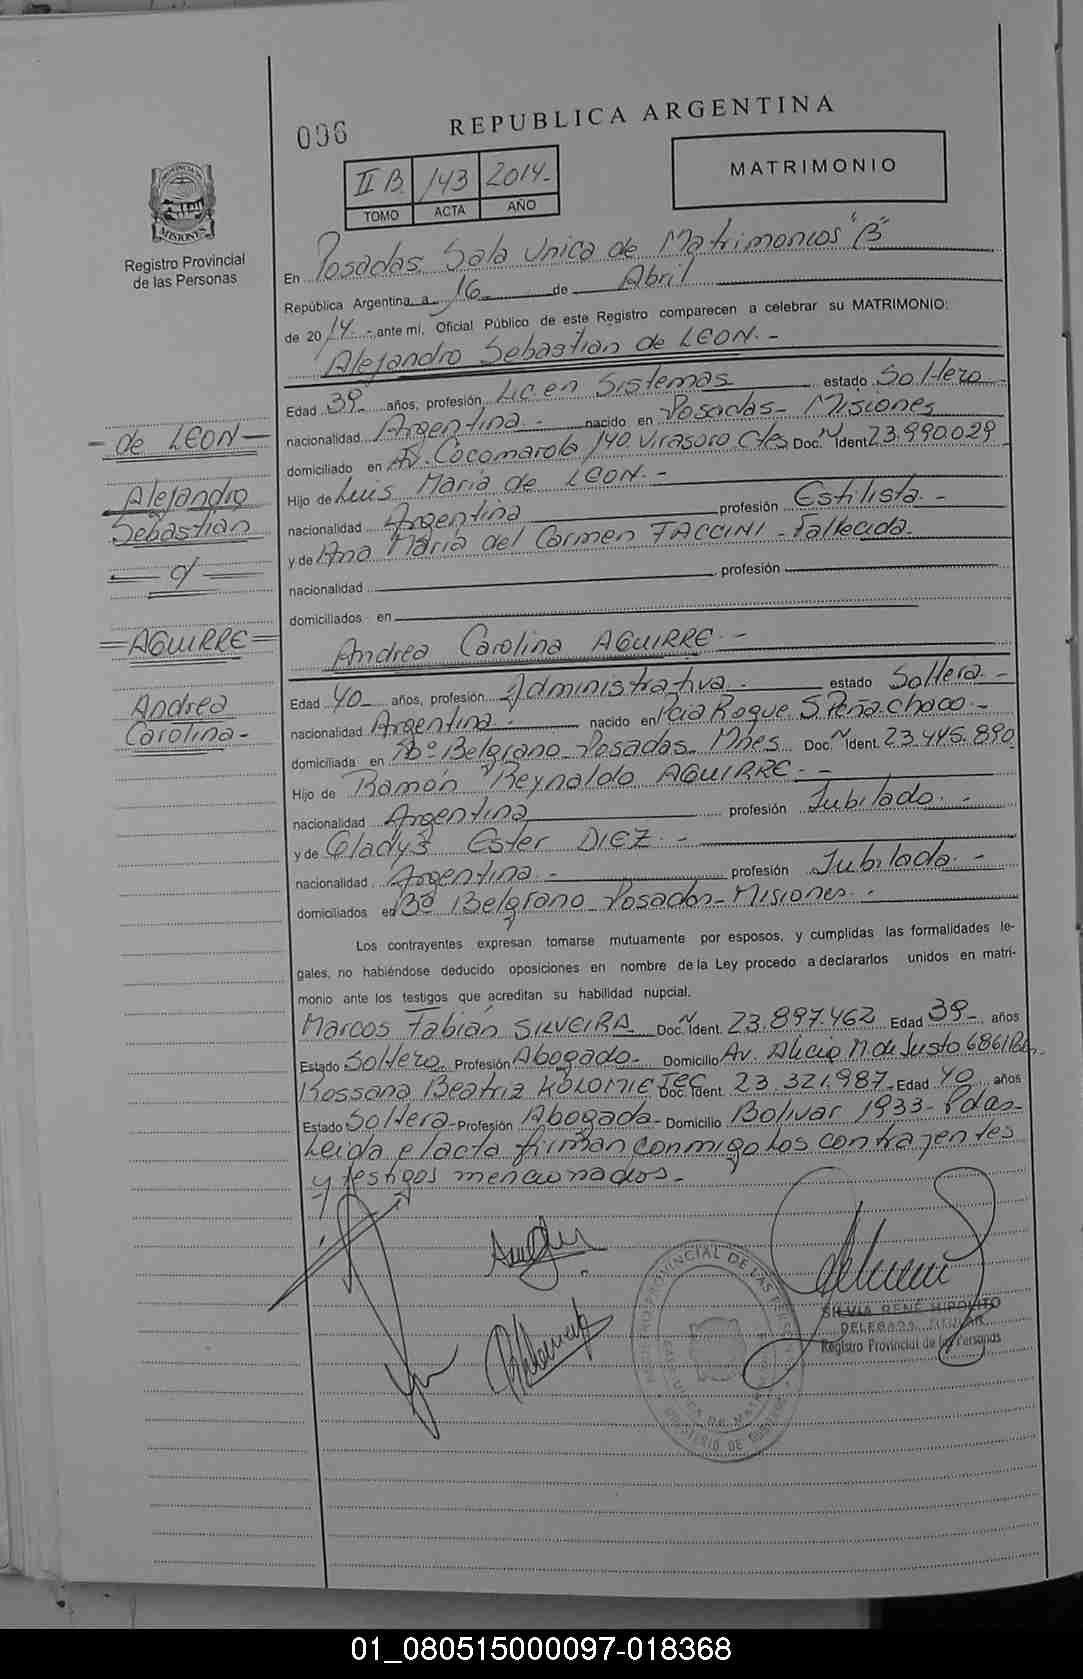 096
REPUBLICA ARGENTINA
II B 143 2014.-
TOMO ACTA AÑO
MATRIMONIO
PROVINCIA DE
MISIONES
Registro Provincial
de las Personas
En Posadas Sala Unica de Matrimonios "B"
República Argentina, a 16 de Abril
de 2014.- ante mí, Oficial Público de este Registro comparecen a celebrar su MATRIMONIO:
Alejandro Sebastián de LEON.-
Edad 39 años, profesión Lic. en Sistemas estado Soltero.-
nacionalidad Argentina.- nacido en Posadas- Misiones
domiciliado en Av. Cocomarola 140 Virasoro Ctes Doc. Ident 23.990.029
Hijo de Luis María de LEON.-
nacionalidad Argentina profesión Estilista.-
y de Ana María del Carmen FACCINI - Fallecida.
nacionalidad profesión
domiciliados en
Andrea Carolina AGUIRRE.-
Edad 40 años, profesión Administrativa.- estado Soltera.-
nacionalidad Argentina.- nacido en Pcia Roque S. Peña Chaco.-
domiciliada en Bº Belgrano Posadas Mnes Doc. Ident. 23.445.890
Hijo de Ramón Reynaldo AGUIRRE.-
nacionalidad Argentina profesión Jubilado.-
y de Gladys Ester DIEZ.-
nacionalidad Argentina.- profesión Jubilada.-
domiciliados en Bº Belgrano Posadas- Misiones.-
Los contrayentes expresan tomarse mutuamente por esposos, y cumplidas las formalidades le-
gales, no habiéndose deducido oposiciones en nombre de la Ley procedo a declararlos unidos en matri-
monio ante los testigos que acreditan su habilidad nupcial.
Marcos Fabián SILVEIRA Doc. Ident. 23.897.462 Edad 39 años
Estado Soltero Profesión Abogado- Domicilio Av. Alicia M de Justo 6861
Rossana Beatriz Doc. Ident. 23.321.987- Edad 40 años
Estado Soltera- Profesión Abogada- Domicilio Bolivar 1933- Pdas-
Leida el acta firman conmigo los contrayentes
y testigos mencionados.-
- de LEON -
Alejandro
Sebastián
c/
= AGUIRRE =
Andrea
Carolina-
SILVIA RENÉ HIPOLITO
DELEGADA TITULAR
Registro Provincial de las Personas
01_080515000097-018368